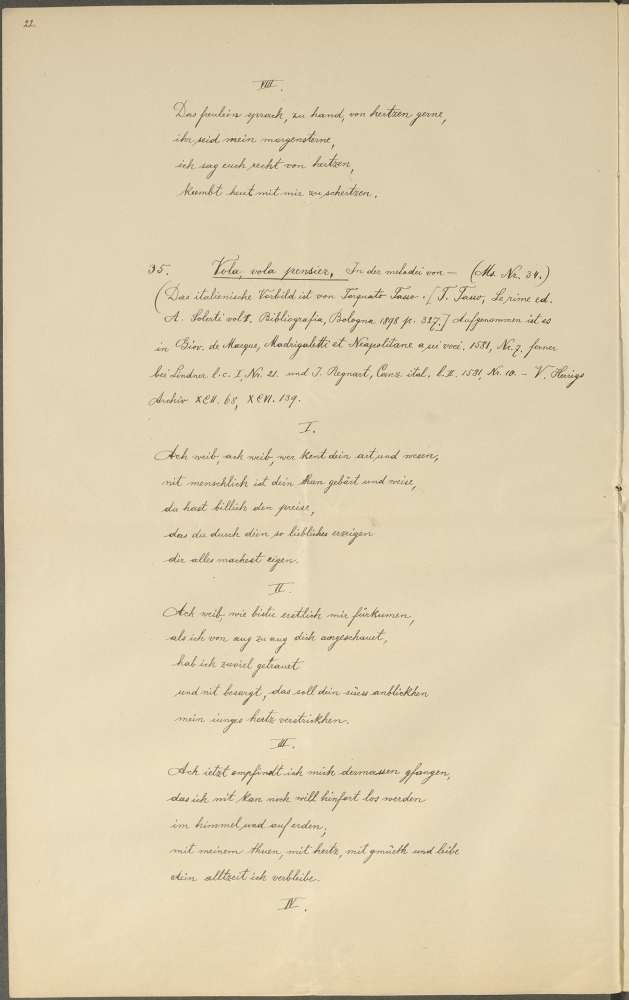 22.
VIII.
Das freulein sprach, zu hand, von hertzen gerne,
ihr seid mein morgensterne,
ich sag euch recht von hertzen,
kumbt heut mit mir zu schertzen.
35. Vola, vola pensier, In der melodei von — (Ms. Nr. 34.)
(Das italienische Vorbild ist von Torquato Tasso. [T. Tasso, Le rime ed.
A. Solerti vol I. Bibliografia, Bologna 1898 p. 327.] Aufgenommen ist es
in Giov. de Macque, Madrigaletti et Neapolitane a sei voci. 1581, Nr. 7, ferner
bei Lindner l.c. I, Nr. 21. und J. Regnart, Canz. ital. l. II. 1581, Nr. 10. – V. Herrigs
Archiv XCII. 68, XCVI. 139.
I.
Ach weib, ach weib, wer kent dein art und wesen,
nit menschlich ist dein thun gebärt und weise,
du hast billich den preise,
das du durch dein so liebliches erzeigen
dir alles machest eigen.
II.
Ach weib, wie bistu erstlich mir fürkumen,
als ich von aug zu aug dich angeschauet,
hab ich zuviel getrauet
und nit besorgt, das soll dein süess anblickhen
mein iunges hertz verstrickhen.
III.
Ach ietzt empfindt ich mich dermassen gfangen,
das ich nit kan noch will hinfort los werden
im himmel und auf erden,
mit meinem thuen, mit hertz, mit gmüeth und leibe
dein alltzeit ich verbleibe.
IV.